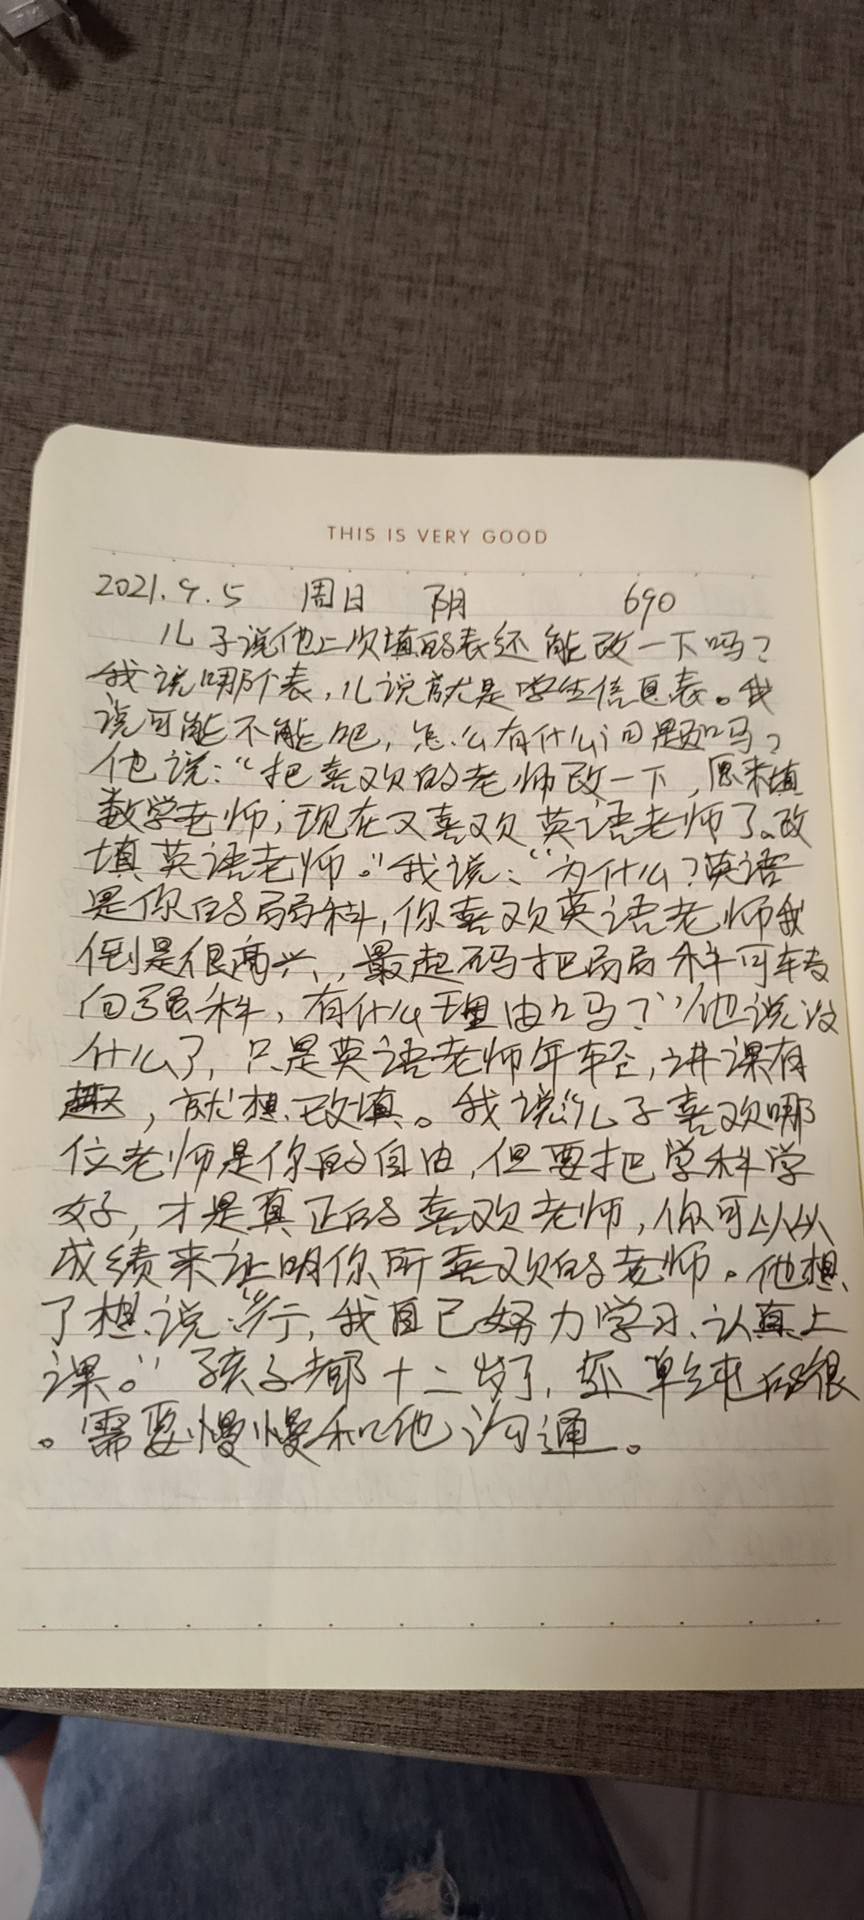 THIS IS VERY GOOD
2021.9.5 周日 阴 690
儿子说他上次填的表还能改一下吗?
我说哪个表,儿说就是学生信息表。我
说可能不能吧,怎么有什么问题吗?
他说:“把喜欢的老师改一下,原来填
数学老师,现在又喜欢英语老师了。改
填英语老师。”我说:“为什么?英语
是你的弱科,你喜欢英语老师我
倒是很高兴,最起码把弱科可转
向强科,有什么理由吗?”他说没
什么了,只是英语老师年轻,讲课有
趣,就想改填。我说“儿子喜欢哪
位老师是你的自由,但要把学科学
好,才是真正的喜欢老师,你可以从
成绩来证明你所喜欢的老师。他想
了想说“行,我自己努力学习、认真上
课。”孩子都十二岁了,还单纯的很
。需要慢慢和他沟通。